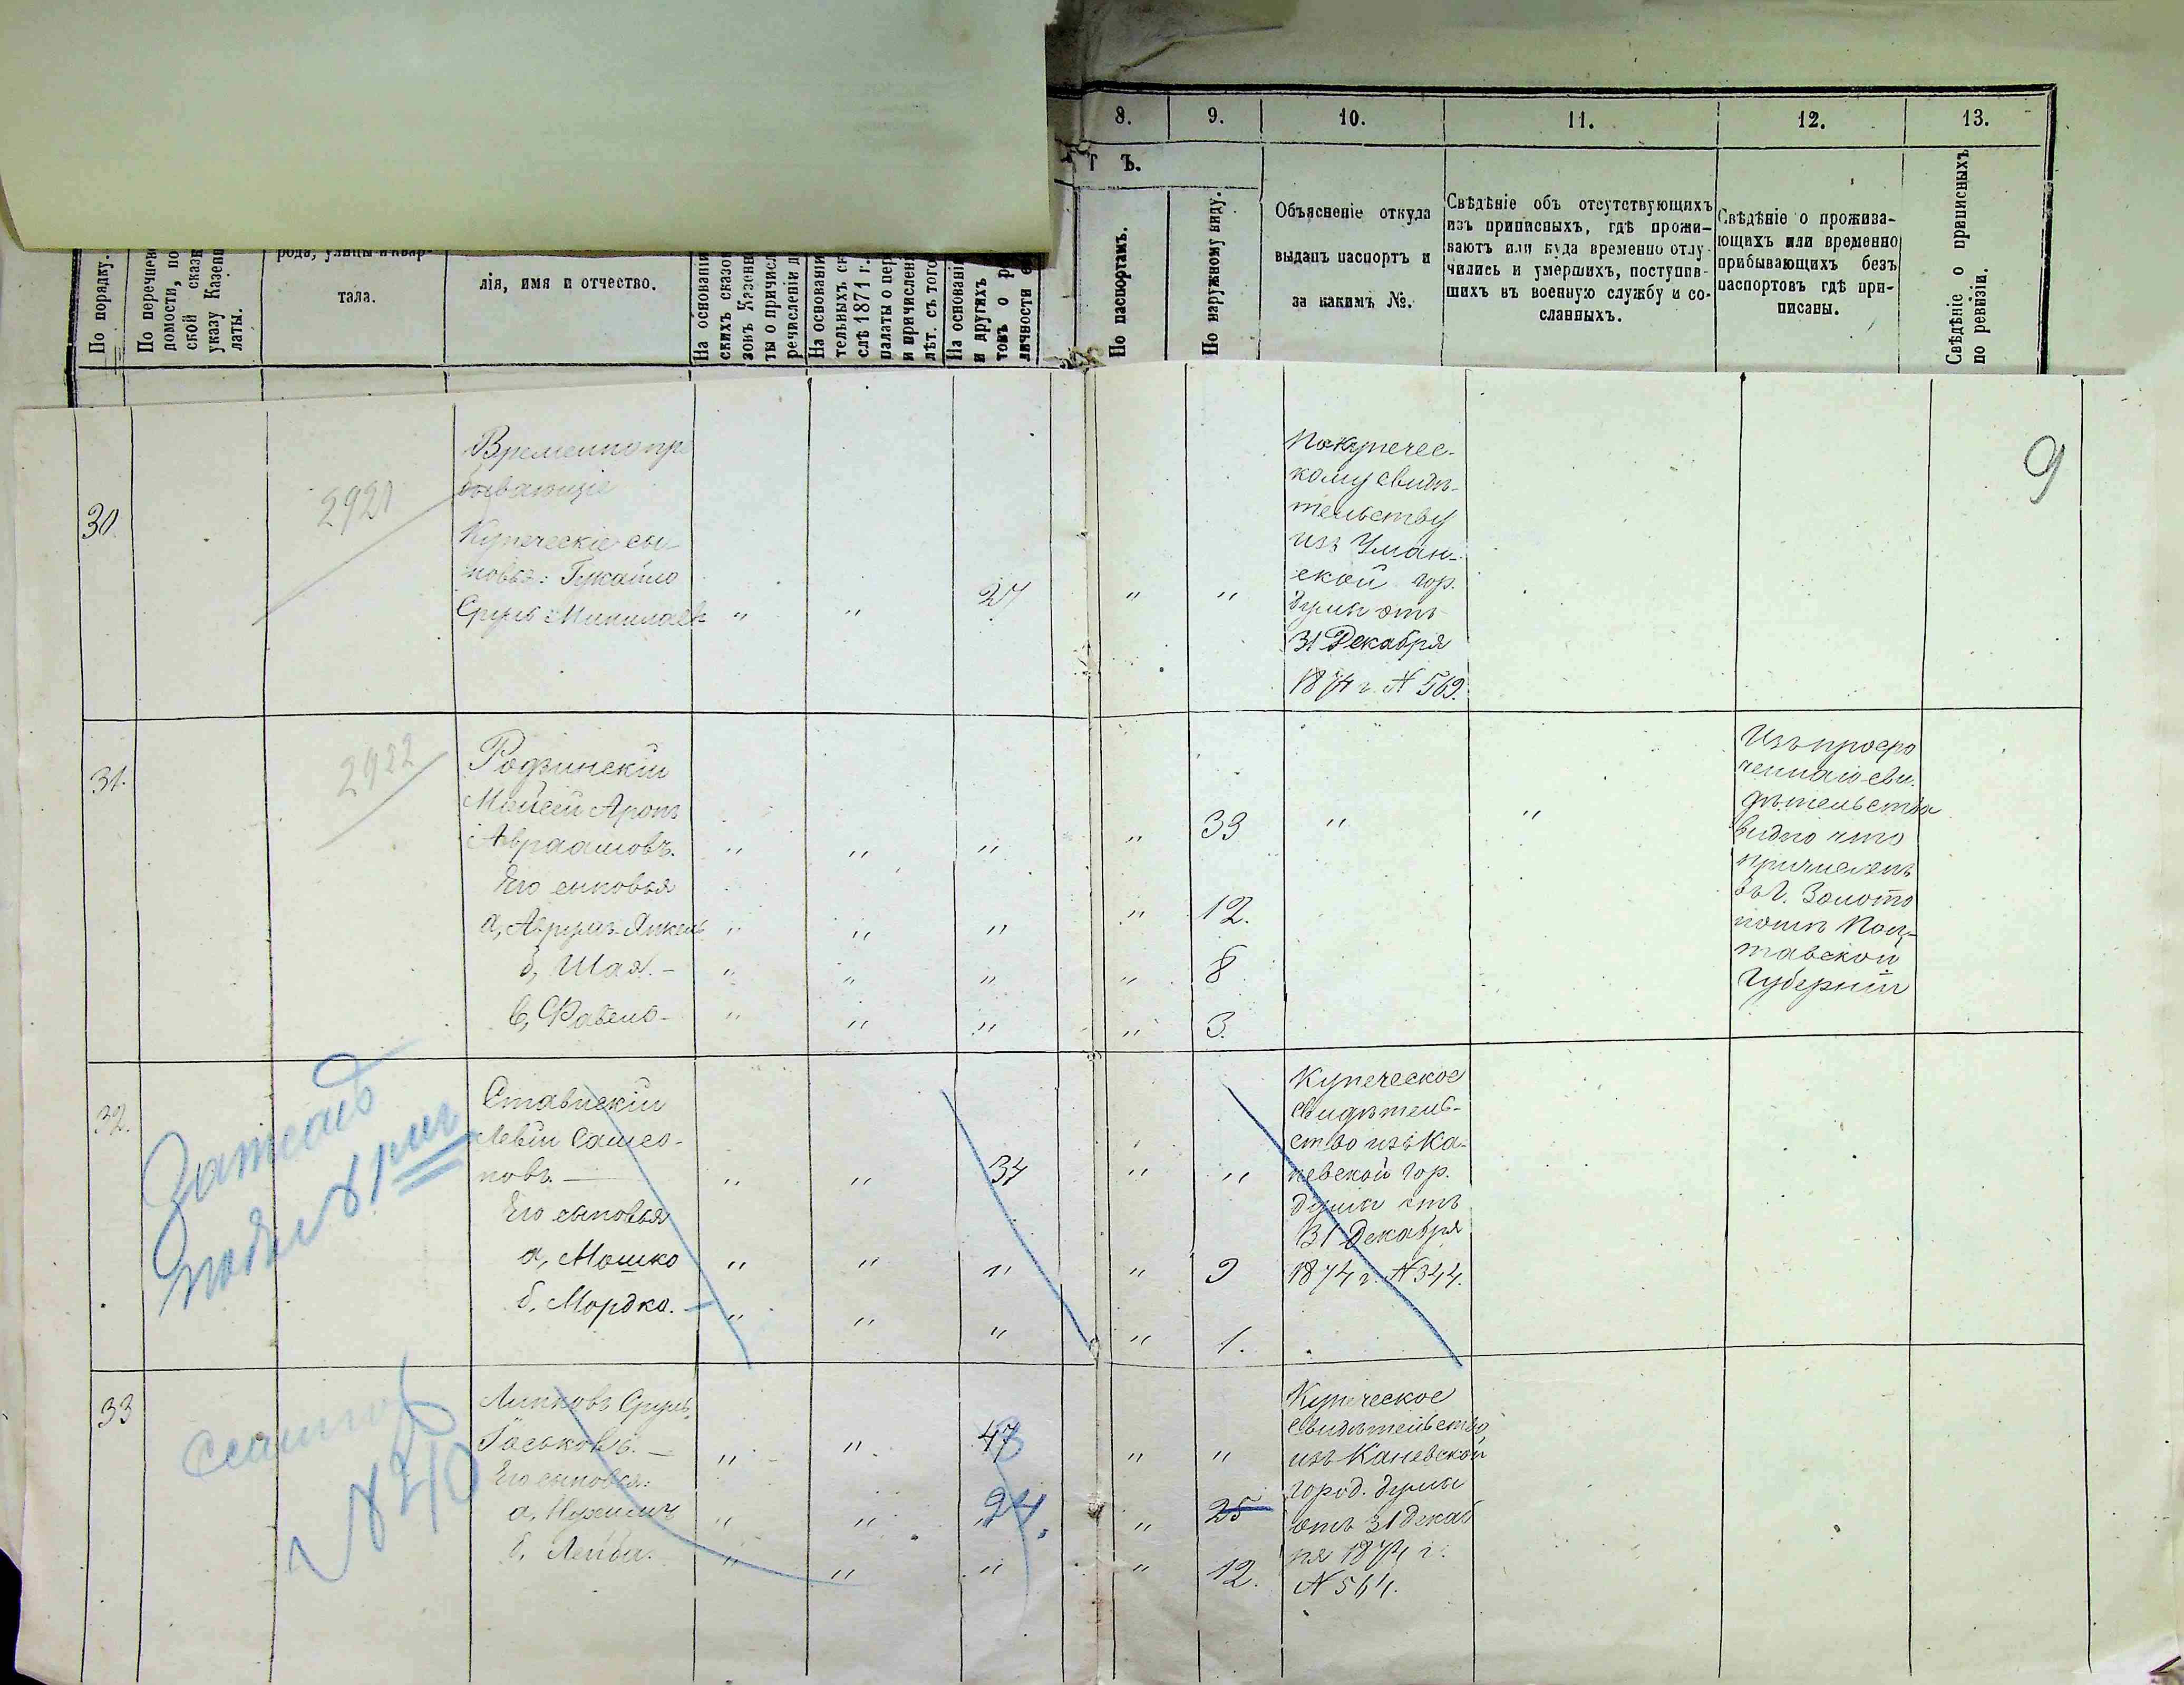 8.
9.
10.
11.
12.
13.
Т Ъ.
По порядку.
По перечнев
домости, по
ской сказк
указу Казенн
латы.
рода, улицы и квар
тала.
лія, имя и отчество.
На основани
скихъ сказок
зонъ Казенн
ты о причисл
речисленіи л
На основани
тельныхъ ск
слѣ 1871 г.
палаты о пер
и причислен
лѣт. съ того
На основані
и другихъ
товъ о р
личности е
По паспортамъ.
По наружному виду.
Объясненіе откуда
выданъ паспортъ и
за какимъ №.
Свѣдѣніе объ отсутствующихъ
изъ приписныхъ, гдѣ прожи-
ваютъ или куда временно отлу-
чились и умершихъ, поступив-
шихъ въ военную службу и со-
сланныхъ.
Свѣдѣніе о прожива-
ющихъ или временно
прибывающихъ безъ
паспортовъ гдѣ при-
писаны.
Свѣдѣніе о приписныхъ
по ревизіи.
9
30.
2921
Временно пре
бывающіе
Купеческіе сы-
новья:
Сруль
" " 27 " "
По купечес-
кому свидѣ-
тельству
изъ Уман-
ской гор.
думы отъ
31 Декабря
1874 г. № 569.
31.
2922
Родзинскій
Мойсей Аронъ
Авраамовъ.
" " " " 33 " "
Его сыновья
а, Аврумъ-Янкель " " " " 12.
б, Шая. - " " " " 8
в, Файвель - " " " " 3.
Изъ просро
ченнаго сви-
дѣтельства
видно что
причисленъ
въ г. Золото
ношѣ Пол-
тавской
Губерніи
32.
Ставискій
Левій Самсо-
новъ. —
" " 34 " "
Его сыновья
а, Мошко " " " " 9
б, Мордко. - " " " " 1.
Купеческое
свидѣтель-
ство изъ Ка-
невской гор.
думы отъ
31 Декабря
1874 г. № 344.
33
№ 40
Липковъ Сруль
Гаськовъ. -
" " 47 " "
Его сыновья:
а, Нухимъ " " 24. " 25
б, Лейба. " " " " 12.
Купеческое
свидѣтельство
изъ Каневской
город. думы
отъ 31 Декаб
ря 1874 г.
№ 564.